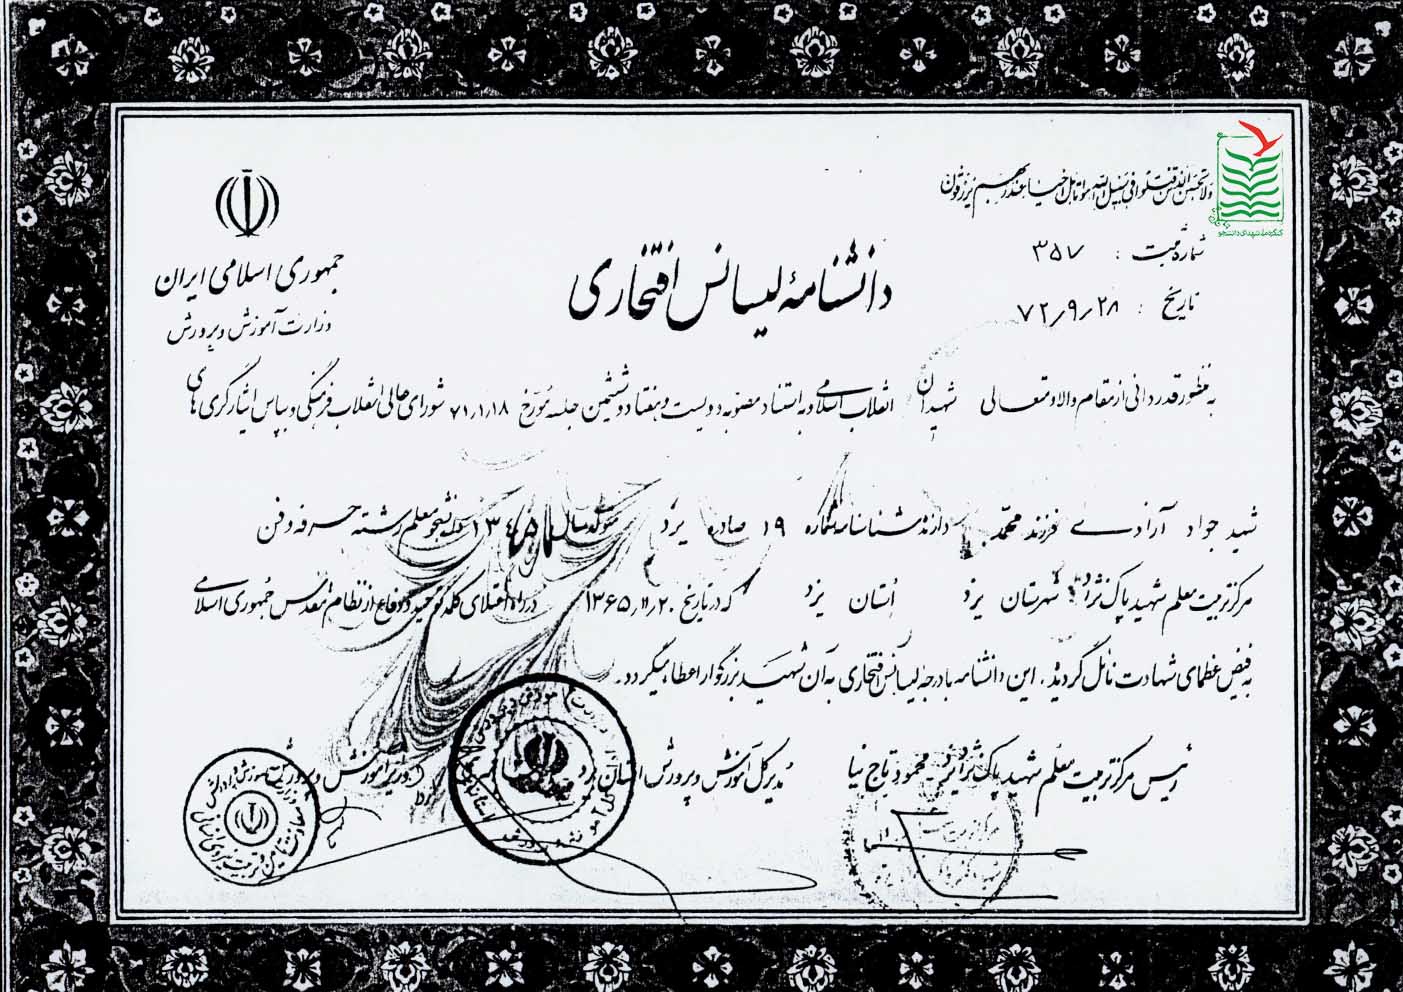 ولا تحسبن الذین قتلوا فی سبیل الله امواتا بل احیاء عند ربهم یرزقون
کنگره ملی شهدای دانشجو
شماره ثبت : ۳۵۷
تاریخ : ۷۲/۹/۲۸
جمهوری اسلامی ایران
وزارت آموزش و پرورش
دانشنامهٔ لیسانس افتخاری
به منظور قدردانی از مقام والا و متعالی شهیدان انقلاب اسلامی و به استناد مصوبه دویست و هفتاد و ششمین جلسه مورّخ ۷۱/۱/۱۸ شورای عالی انقلاب فرهنگی و بپاس ایثارگری های
شهید جواد آزادی فرزند محمّد دارنده شناسنامه شماره ۱۹ صادره یزد متولد سال ۱۳۴۵ دانشجو معلم رشته حرفه و فن
مرکز تربیت معلم شهید پاک نژاد شهرستان یزد استان یزد که در تاریخ ۱۳۶۵/۱۱/۲۰ در راه اعتلای کلمه توحید و دفاع از نظام مقدس جمهوری اسلامی
به فیض عظمای شهادت نائل گردید، این دانشنامه با درجه لیسانس افتخاری به آن شهید بزرگوار اعطاء میگردد.
رئیس مرکز تربیت معلم شهید پاک نژاد یزد محمود تاج نیا
مدیر کل آموزش و پرورش استان یزد
وزیر آموزش و پرورش